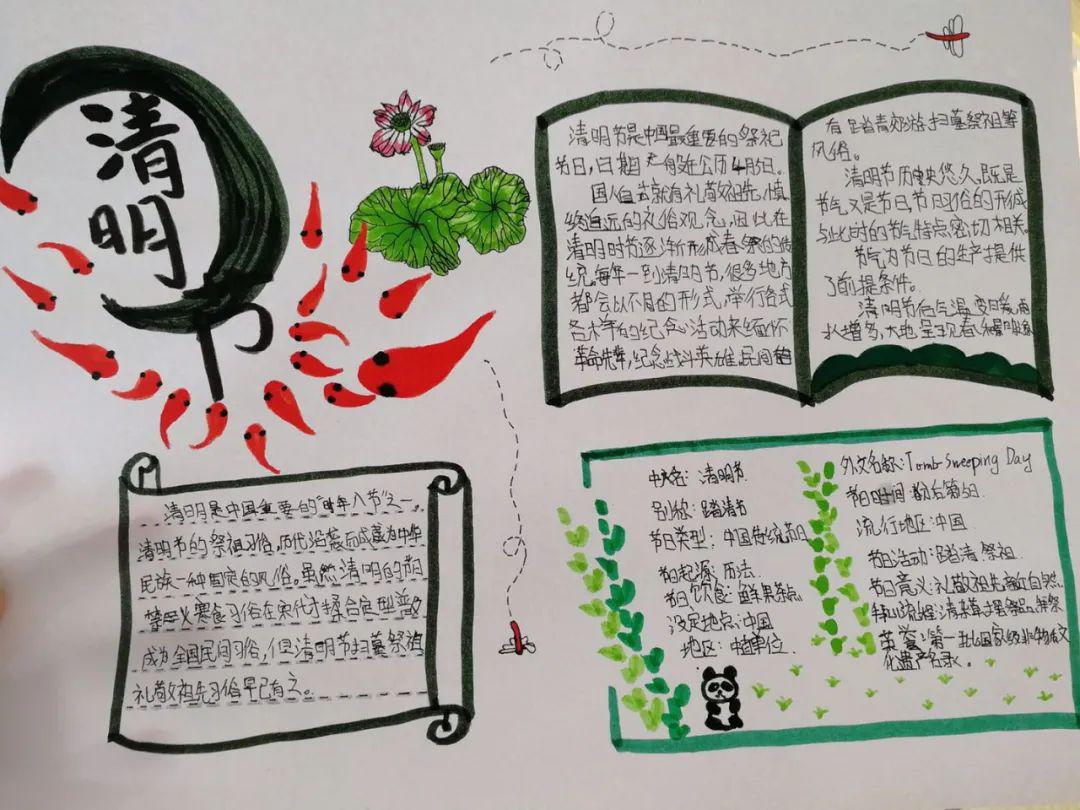 清明
节
清明节是中国最重要的祭祀
节日,日期一般近公历4月5日。
国人自古就有礼敬祖先,慎
终追远的礼俗观念,因此在
清明时节逐渐形成春祭的传
统,每年一到清明节,很多地方
都会以不同的形式,举行各式
各样的纪念心活动来缅怀
革命先辈,纪念战斗英雄,民间
有踏青郊游,扫墓祭祖等
风俗。
清明节历史悠久,既是
节气又是节日节日习俗的形成
与此时的节气特点密切相关。
节气为节日的生产提供
了前提条件。
清明节后气温变日暖,雨
水增多,大地呈现春和景明
清明是中国重要的"时年八节"之一。
清明节的祭祖习俗,历代沿袭后成为中华
民族一种固定的风俗。虽然清明的
禁火寒食习俗在宋代才揉合定型并
成为全国民间习俗,但清明节扫墓祭祖
礼敬祖先习俗早已有之。
中文名:清明节
别称:踏清节
节日类型:中国传统节日
节日起源:历法
节日饮食:鲜果茶点
设定地点:中国
地区:单位
外文名称:Tomb-Sweeping Day
节日时间
流行地区:中国
节日活动:踏清 祭祖
节日意义:礼敬祖先自然
清杂草
荣誉:第一批国家级非物质文
化遗产名录。